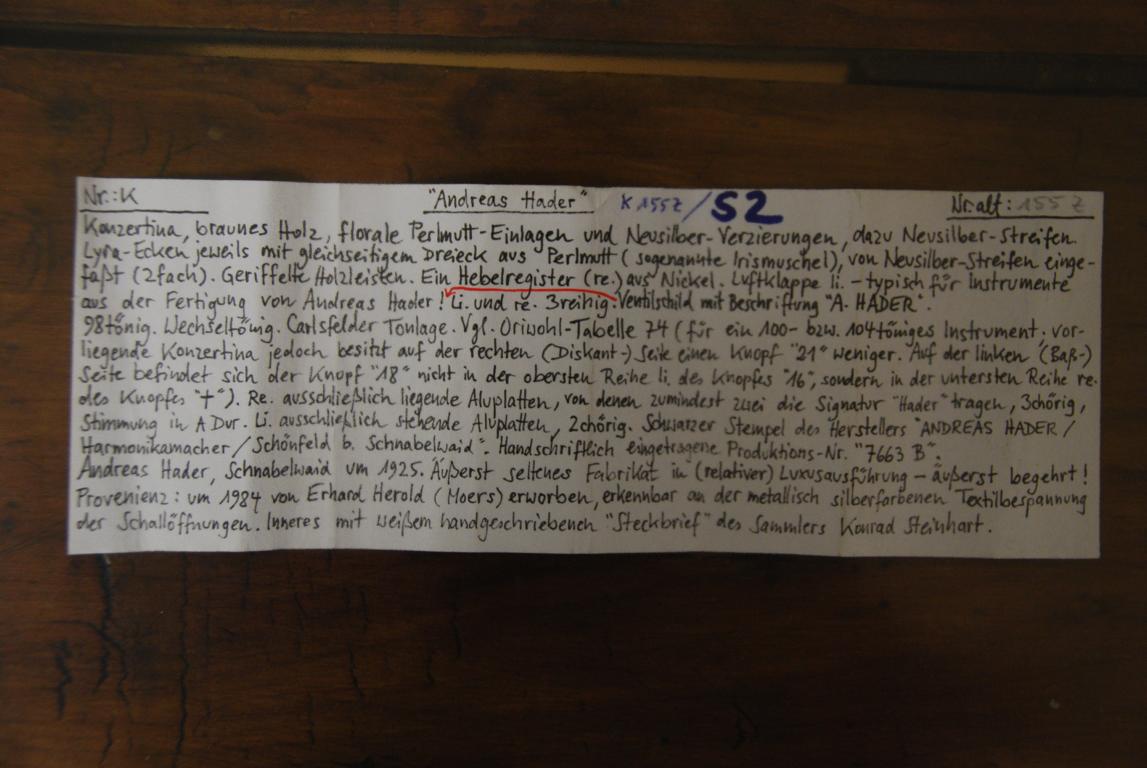 Nr.: K "Andreas Hader" K 155Z / S2 Nr. alt: 155 Z
Konzertina, braunes Holz, florale Perlmutt-Einlagen und Neusilber-Verzierungen, dazu Neusilber-Streifen.
Lyra-Ecken jeweils mit gleichseitigem Dreieck aus Perlmutt (sogenannte Irismuschel), von Neusilber-Streifen einge-
faßt (2fach). Geriffelte Holzleisten. Ein Hebelregister (re.) aus Nickel. Luftklappe li. - typisch für Instrumente
aus der Fertigung von Andreas Hader! Li. und re. 3reihig. Ventilschild mit Beschriftung "A. HADER".
98tönig. Wechseltönig. Carlsfelder Tonlage. Vgl. Oriwohl-Tabelle 74 (für ein 100- bzw. 104töniges Instrument; vor-
liegende Konzertina jedoch besitzt auf der rechten (Diskant-) Seite einen Knopf "21" weniger. Auf der linken (Baß-)
Seite befindet sich der Knopf "18" nicht in der obersten Reihe li. des Knopfes "16", sondern in der untersten Reihe re.
des Knopfes "+"). Re. ausschließlich liegende Aluplatten, von denen zumindest zwei die Signatur "Hader" tragen, 3chörig,
Stimmung in A Dur. Li. ausschließlich stehende Aluplatten, 2chörig. Schwarzer Stempel des Herstellers "ANDREAS HADER /
Harmonikamacher / Schönfeld b. Schnabelwaid". Handschriftlich eingetragene Produktions-Nr. "7663 B".
Andreas Hader, Schnabelwaid um 1925. Äußerst seltenes Fabrikat in (relativer) Luxusausführung - äußerst begehrt!
Provenienz: um 1984 von Erhard Herold (Moers) erworben, erkennbar an der metallisch silberfarbenen Textilbespannung
der Schallöffnungen. Inneres mit weißem handgeschriebenen "Steckbrief" des Sammlers Konrad Steinhart.